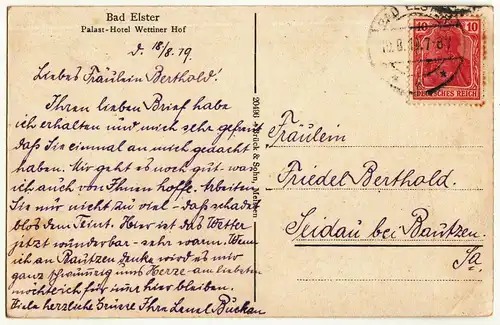 Bad Elster
Palast-Hotel Wettiner Hof
d. 18/8. 19.
Liebes Fräulein Berthold!
Ihren lieben Brief habe
ich erhalten und mich sehr gefreut
daß Sie einmal an mich gedacht
haben. Mir geht es noch gut - was
ich auch von Ihnen hoffe. Arbeiten
Sie nur nicht zu viel - daß schadet
blos dem Teint. Hier ist das Wetter
jetzt wunderbar - sehr warm. Wenn
ich an Bautzen denke wird es mir
ganz schwumrig ums Herze - am liebsten
möchte ich für immer hier bleiben.
Viele herzliche Grüsse Ihre Buckan
20496 Brück & Sohn, Meissen
BAD ELSTER
18.8.19. 7-8V
10 10
DEUTSCHES REICH
Fräulein
Friedel Berthold.
Seidau bei Bautzen.
Sa.